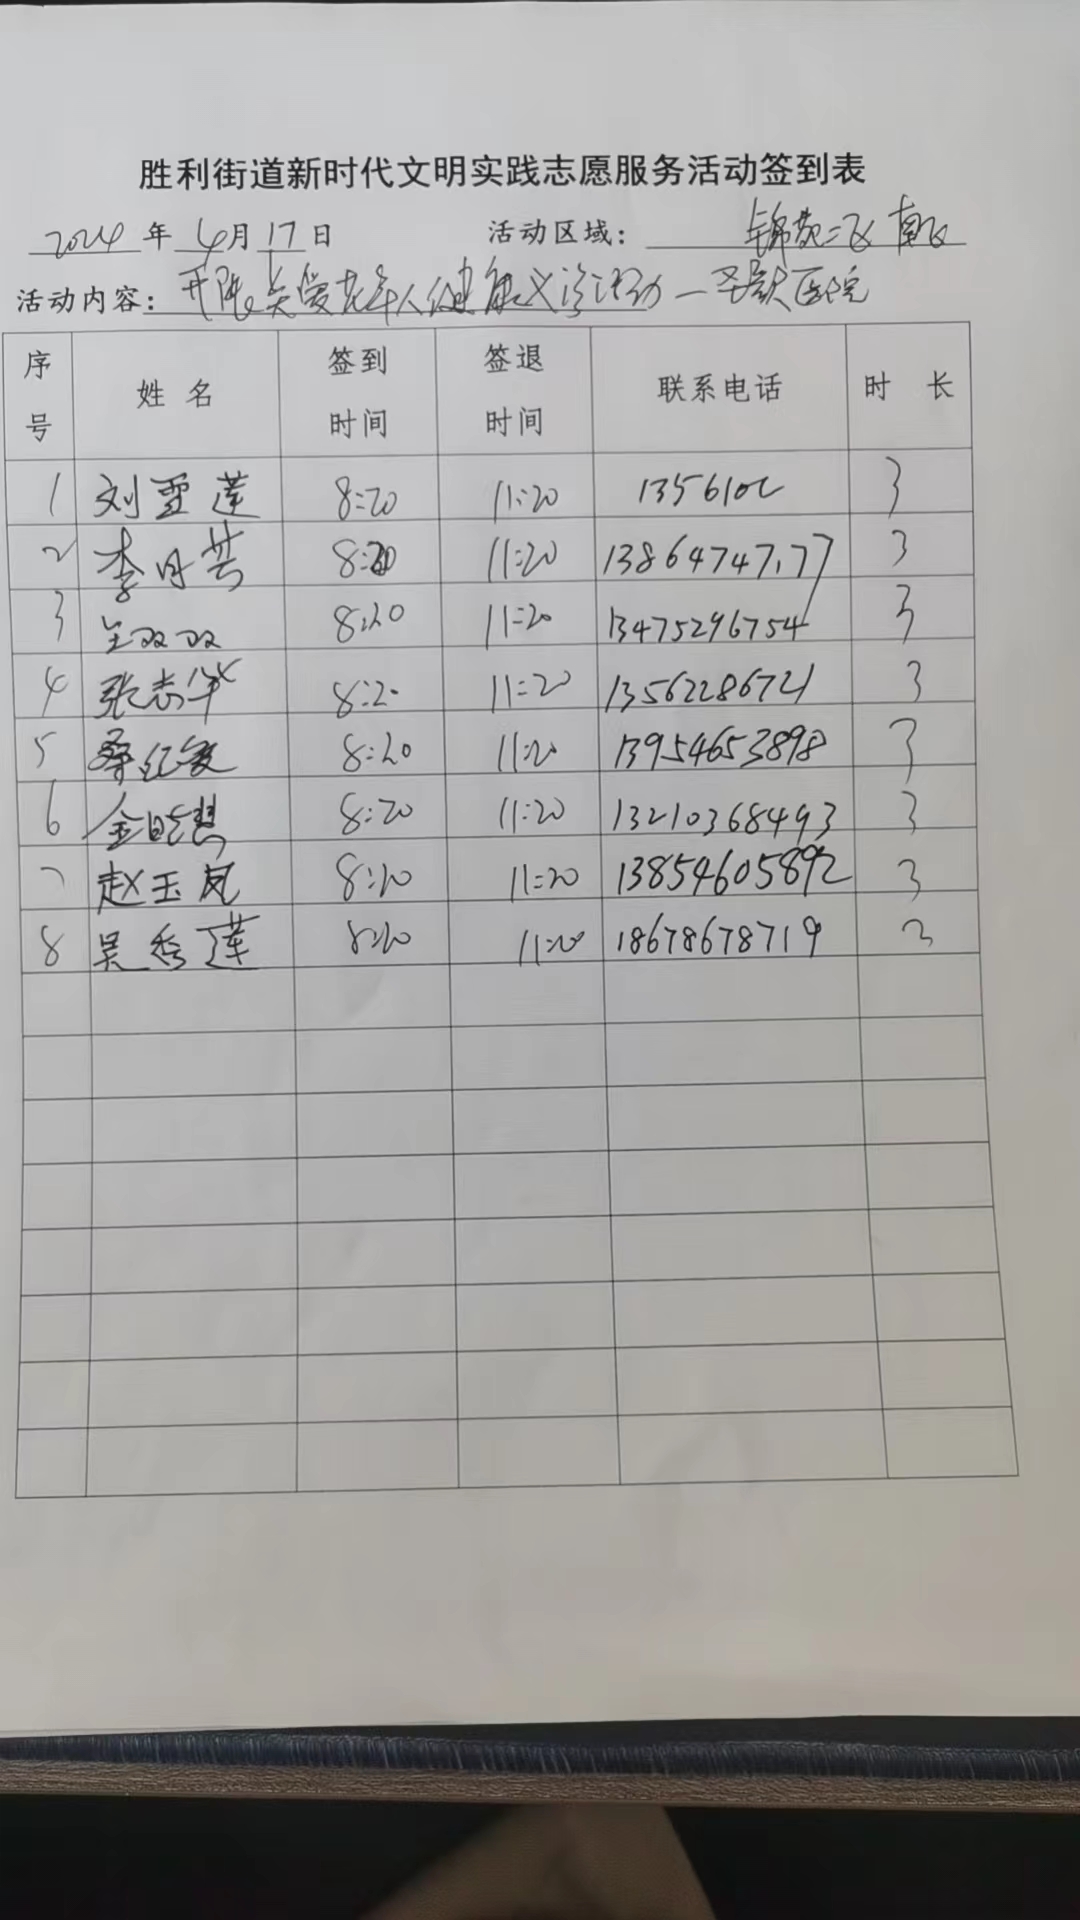 胜利街道新时代文明实践志愿服务活动签到表
2024 年 4月 17 日 活动区域: 锦苑二区 南区
活动内容: 开展关爱老年人健康义诊活动一 医院
序号 姓名 签到时间 签退时间 联系电话 时长
1 刘雪莲 8:20 11:20 135610 3
2 李月芸 8:20 11:20 13864747177 3
3 双双 8:20 11:20 13475296754 3
4 张志华 8:20 11:20 13562286721 3
5 桑红霞 8:20 11:20 13954653898 3
6 金 慧 8:20 11:20 13210368493 3
7 赵玉凤 8:20 11:20 13854605892 3
8 吴秀莲 8:20 11:20 18678678719 3